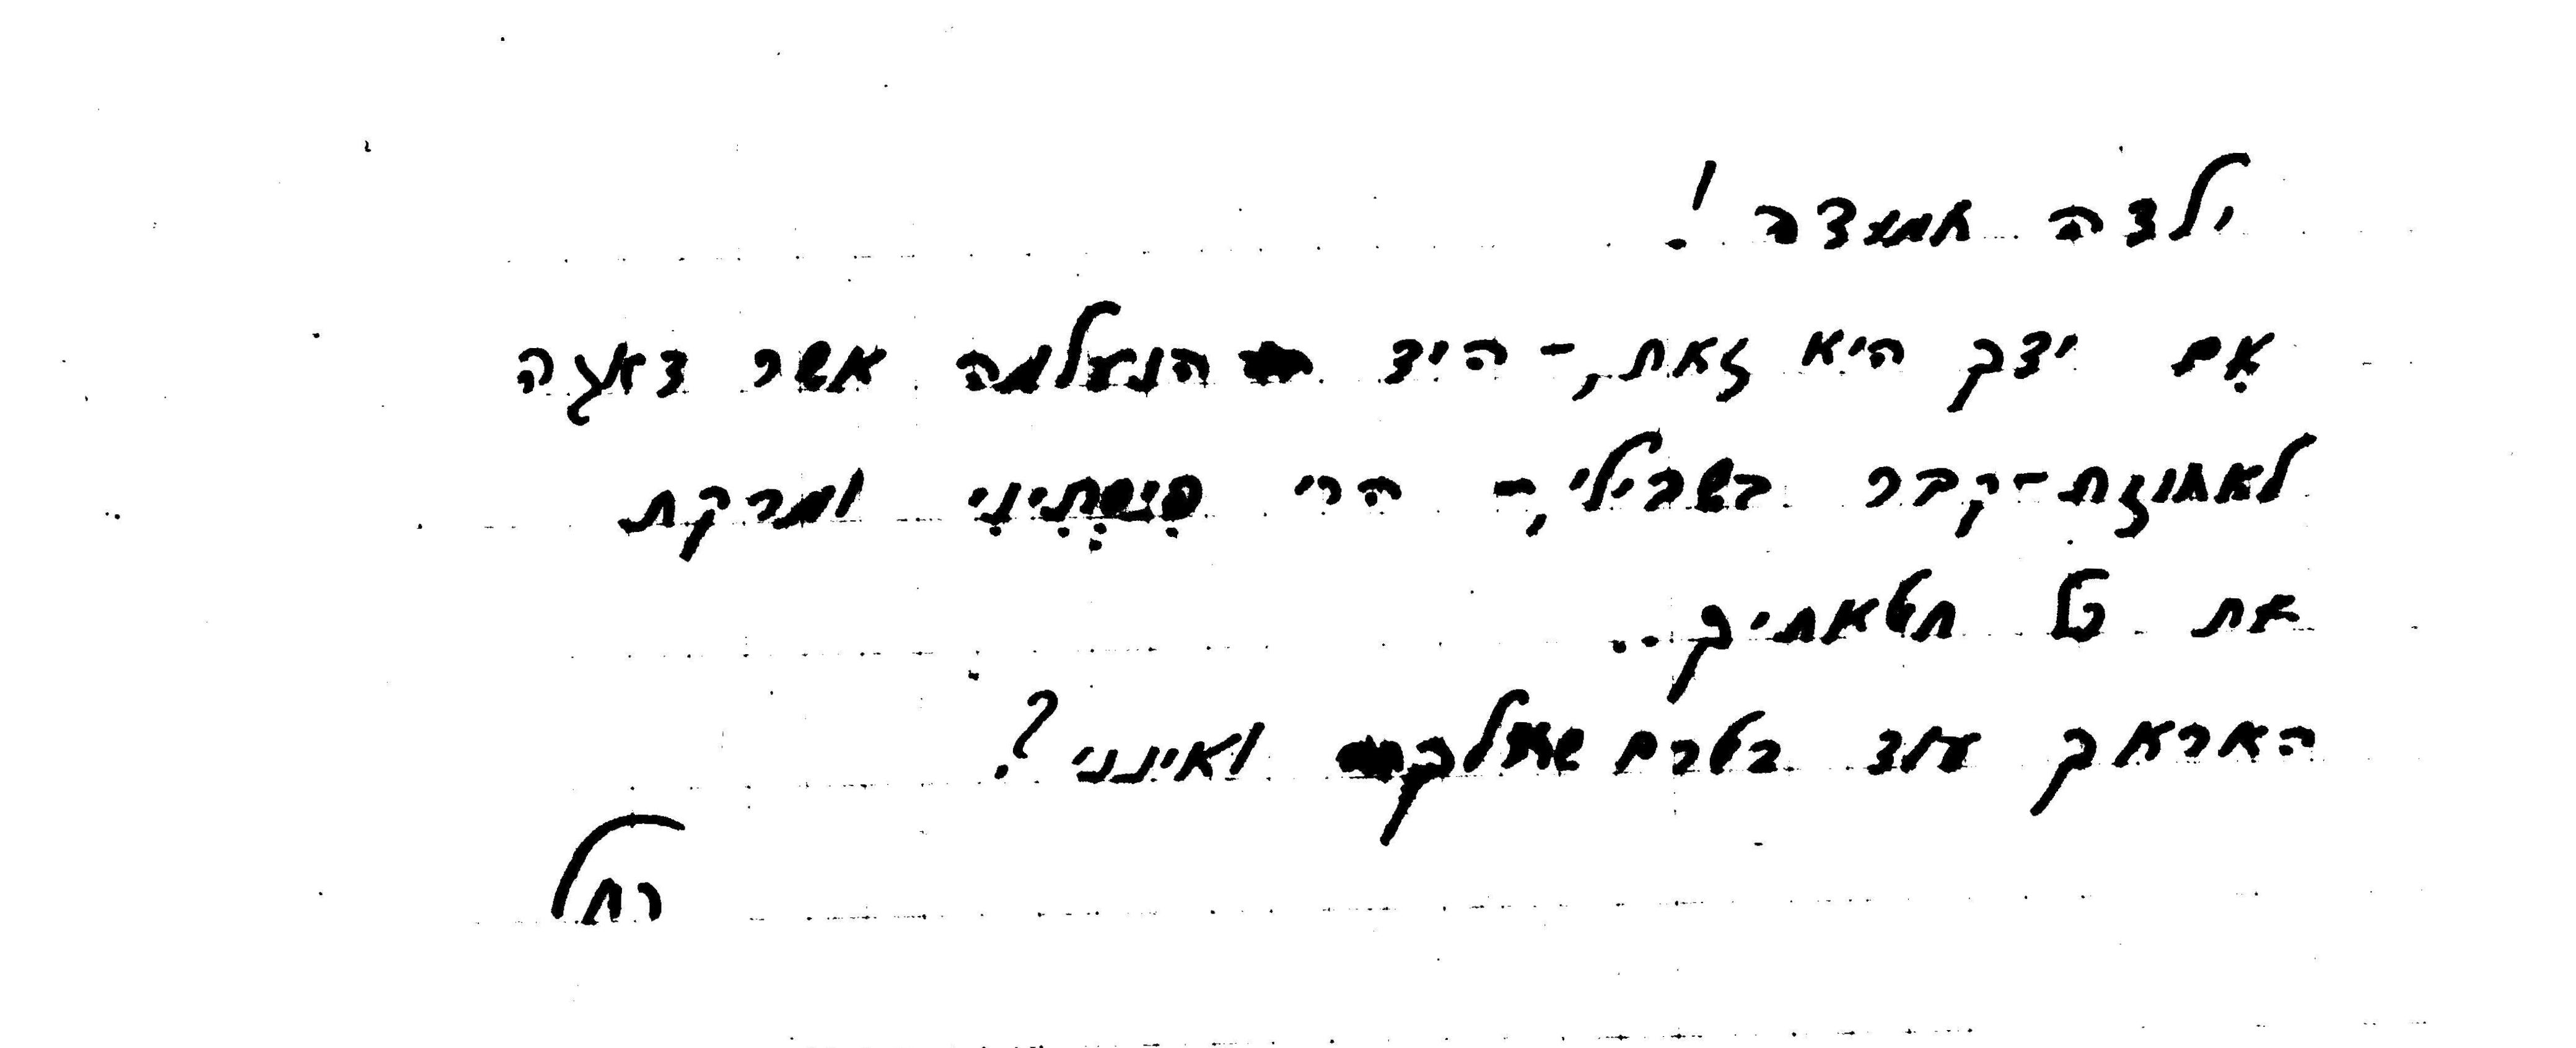 ילדה חמודה!
אִם ידך היא זאת,- היד הנעלמה אשר דאגה
לאחוזת-קבר בשבילי,- הרי פִּיַסְתִּינִי ומרקת
את כל חטאתיך..
האראך עוד בטרם שאלך ואינני?
רחל